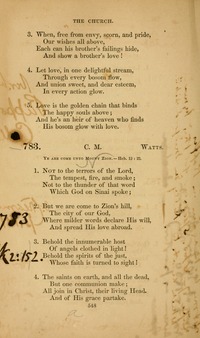 THE CHURCH.
3. When, free from envy, scorn, and pride,
Our wishes all above,
Each can his brother's failings hide,
And show a brother's love!
4. Let love, in one delightful stream,
Through every bosom flow,
And union sweet, and dear esteem,
In every action glow.
5. Love is the golden chain that binds
The happy souls above;
And he's an heir of heaven who finds
His bosom glow with love.
783. C. M. WATTS.
YE ARE COME UNTO MOUNT ZION.—Heb. 12: 22.
1. NOT to the terrors of the Lord,
The tempest, fire, and smoke;
Not to the thunder of that word
Which God on Sinai spoke;
2. But we are come to Zion's hill,
The city of our God,
Where milder words declare His will,
And spread His love abroad.
783
3. Behold the innumerable host
Of angels clothed in light!
2:152.
Behold the spirits of the just,
Whose faith is turned to sight!
4. The saints on earth, and all the dead,
But one communion make;
All join in Christ, their living Head,
And of His grace partake.
548